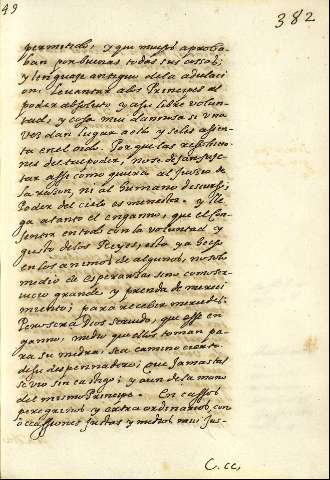 49
382
permitido, y que mucho aproba-
ban por buenas todas sus cosas;
y lenguaje antiguo de la adulaci-
on, levantar a los Principes al
poder absoluto y a su libre volun-
tad; y cosa mui dañosa si una
vez dan lugar a esto y se les assien-
ta en el oido. Porque las
nes del tal poder, no se dejan suje-
tar assi como quiera al Juizio de
la razon, ni al humano discurso;
Poder del cielo es menester. y lle-
ga a tanto el engaño, que el con-
sentir en todo con la voluntad y
gusto de los Reyes, esta ya hoi
en los animos de algunos, no solo
medio de esperanzas sino como ser-
vicio grande y prenda de mereci-
miento; para recever mercedes.
Pero sera Dios servido, que esse en-
gaño, medio que ellos toman pa-
ra su medra, sea camino cierto
de su despeñadero; que jamas tal
se vio sin castigo; y aun de la mano
del mismo Principe. En cassos
peregrinos y extraordinarios, con
occassiones justas y medios mui jus-
C. cc,